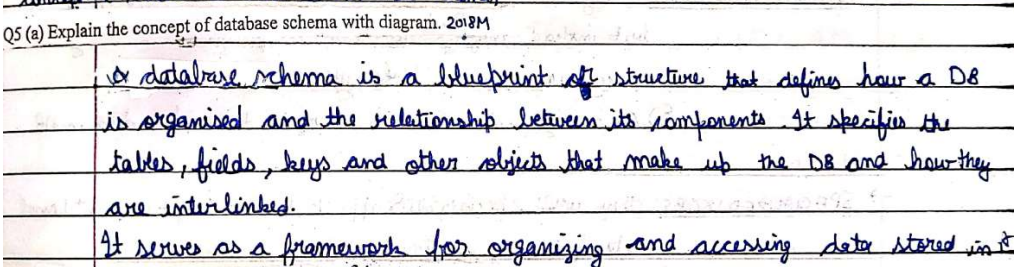 Q5 (a) Explain the concept of database schema with diagram. 2018M
A database schema is a blueprint or structure that defines how a DB
is organised and the relationship between its components. It specifies the
tables, fields, keys and other objects that make up the DB and how they
are interlinked.
It serves as a framework for organizing and accessing data stored in it